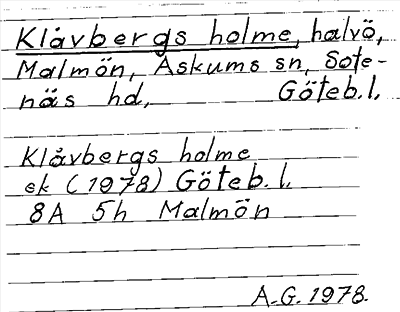 Klåvbergs holme, halvö,
Malmön, Askums sn, Sote-
näs hd, Göteb.l.
Klåvbergs holme
ek (1978) Göteb.l.
8A 5h Malmön
A.G. 1978.